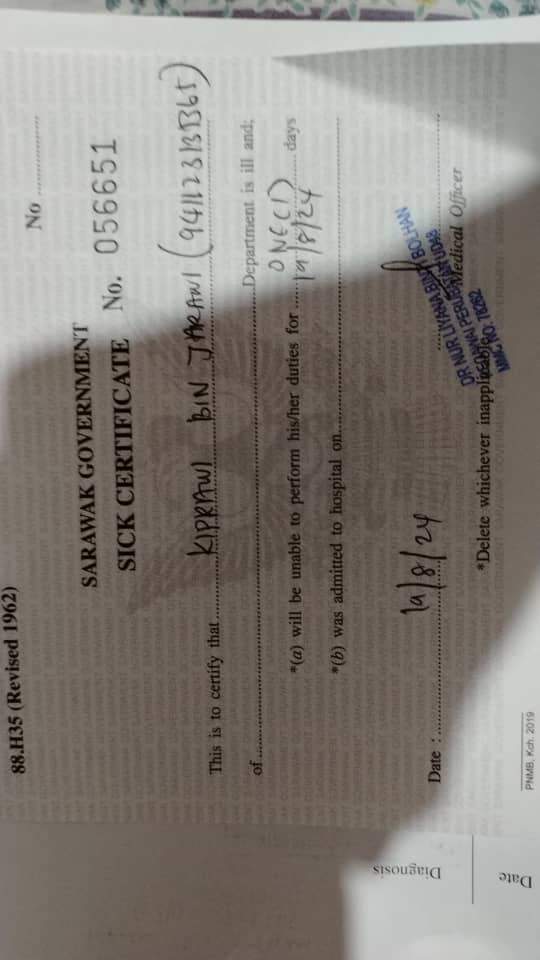 88.H35 (Revised 1962)
No ..................
SARAWAK GOVERNMENT
SICK CERTIFICATE No. 056651
This is to certify that KIPRAWI BIN JARAWI (
of Department is ill and;
*(a) will be unable to perform his/her duties for ONE (1) days
19/8/24
*(b) was admitted to hospital on
Date : 19/8/24
DR NUR LIYANA BINTI BOLHAN
MMC NO: 78262
Medical Officer
*Delete whichever inapplicable.
PNMB, Kch. 2019
Diagnosis
Date